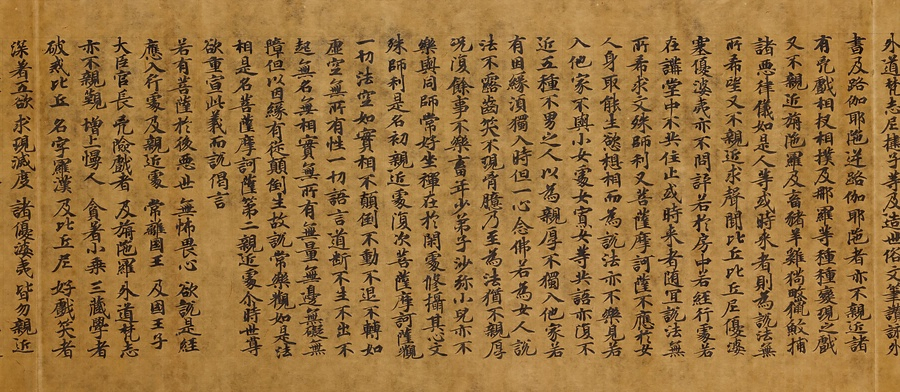 外道梵志尼揵子等及造世俗文筆讚詠外
書及路伽耶陀逆路伽耶陀者亦不親近諸
有兇戲相扠相撲及那羅等種種變現之戲
又不親近旃陀羅及畜猪羊雞狗畋獵捕
諸惡律儀如是人等或時来者則為說法無
所希望又不親近求聲聞比丘比丘尼優婆
塞優婆夷亦不問訊若於房中若經行處若
在講堂中不共住止或時来者随宜說法無
所希求文殊師利又菩薩摩訶薩不應於女
人身取能生慾想相而為說法亦不樂見若
入他家不與小女處女寡女等共語亦復不
近五種不男之人以為親厚不獨入他家若
有因緣須獨入時但一心念佛若為女人說
法不露齒笑不現胷臆乃至為法猶不親厚
況復餘事不樂畜年少弟子沙弥小兒亦不
樂與同師常好坐禪在於閑處修攝其心文
殊師利是名初親近處復次菩薩摩訶薩觀
一切法空如實相不顛倒不動不退不轉如
虛空無所有性一切語言道断不生不出不
起無名無相實無所有無量無邊無礙無
障但以因緣有從顛倒生故說常樂觀如是法
相是名菩薩摩訶薩第二親近處尒時世尊
欲重宣此義而說偈言
若有菩薩 於後惡世 無怖畏心 欲說是經
應入行處 及親近處 常離國王 及國王子
大臣官長 兇險戲者 及旃陀羅 外道梵志
亦不親觀 增上慢人 貪著小乘 三藏學者
破戒比丘 名字羅漢 及比丘尼 好戲笑者
深著五欲 求現滅度 諸優婆夷 皆勿親近